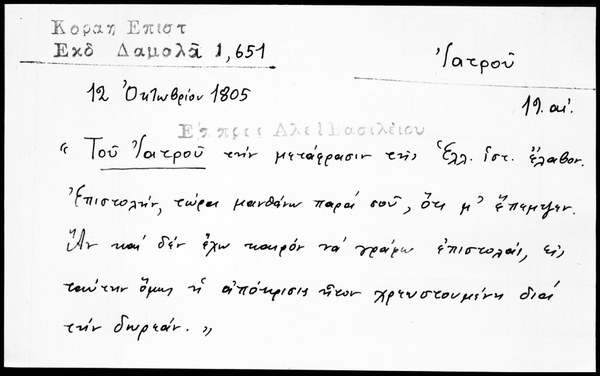 Κοραη Επιστ
Εκδ Δαμαλᾶ 1,651
Ἰατροῦ
12 Ὀκτωβρίου 1805
19. αἰ.
Επ προς Αλεξ Βασιλείου
« Τοῦ Ἰατροῦ τὴν μετάφρασιν τῆς Ἑλλ. ἱστ. ἔλαβον.
Ἐπιστολήν, τώρα μανθάνω παρά σοῦ, ὅτι μ' ἔπεμψεν.
Ἄν καί δέν ἔχω καιρόν νά γράφω ἐπιστολάς, εἰς
ταύτην ὅμως ἡ ἀπόκρισις ἦτον χρεωστουμένη διά
τήν δωρεάν. »